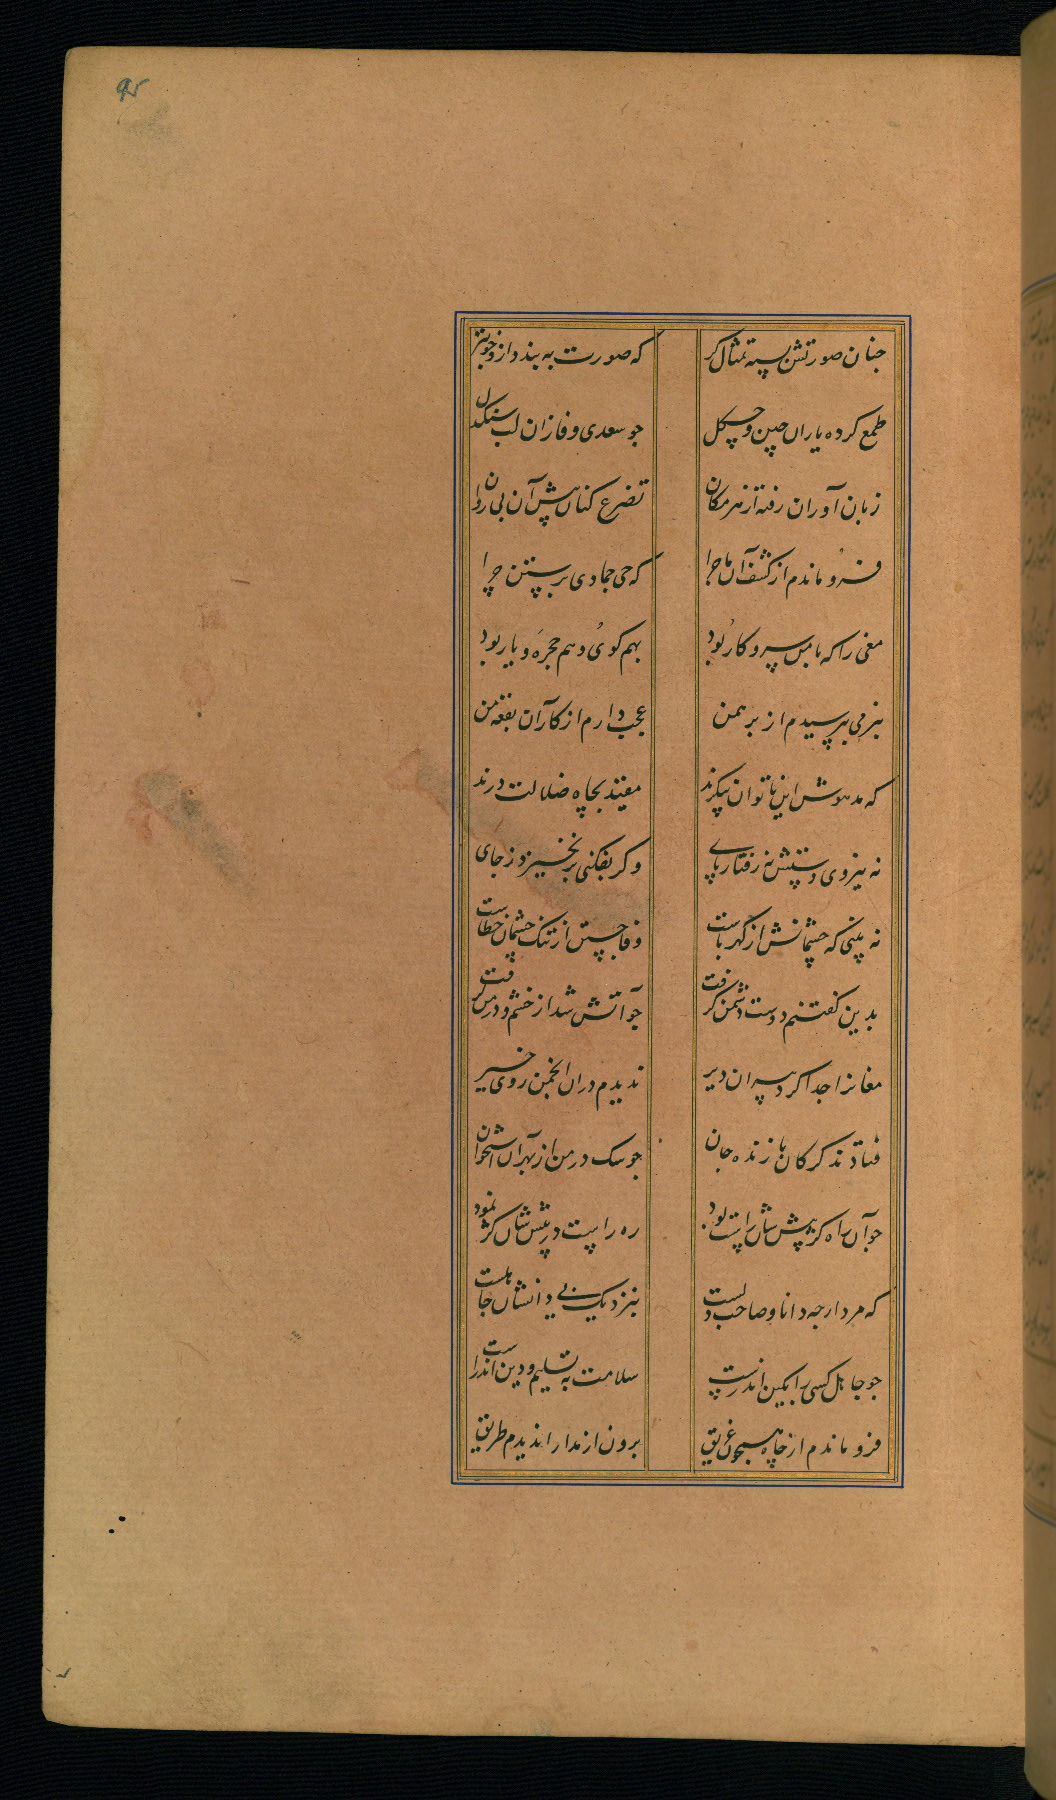 ۹۵
جنان صورتش بسته تمثال کر
که صورت نه بندد از و خوبتر
طمع کرده یاران چین و چکل
جو سعدی وفا زان لب سنکدل
زبان آوران رفته از هر مکان
تضرع کنان پیش آن بی روان
فرو ماندم از کشف آن ماجرا
که حی جمادی پرستن چرا
مغی را که با من سر و کار بود
بهم کوی و هم حجره و یار بود
بنرمی بپرسیدم از برهمن
عجب دارم از کار آن بقعه من
که مدهوش این ناتوان پیکرند
مقید بچاه ضلالت درند
نه نیروی دستش نه رفتار پای
و کر بفکنی برنخیزد ز جای
نه بینی که چشمانش از کهرباست
وفا جستن از تنک چشمان خطاست
بدین کفتنم دوست دشمن کرفت
جو آتش شد از خشم و در من کرفت
مغانرا جدا کرد پیران دیر
ندیدم دران انجمن روی خیر
فتادند کرکان بازنده جان
جو سک در من از بهر آن استخوان
جو آن راه کژ پیش شان راست بود
ره راست در پیش شان کژ نمود
که مرد ارجه دانا و صاحب دلست
بنزدیک بی دانشان جاهلست
جو جاهل کسی را بکین اندرست
سلامت به تسلیم و دین اندرست
فرو ماندم از چاه همچون غریق
برون از مدارا ندیدم طریق